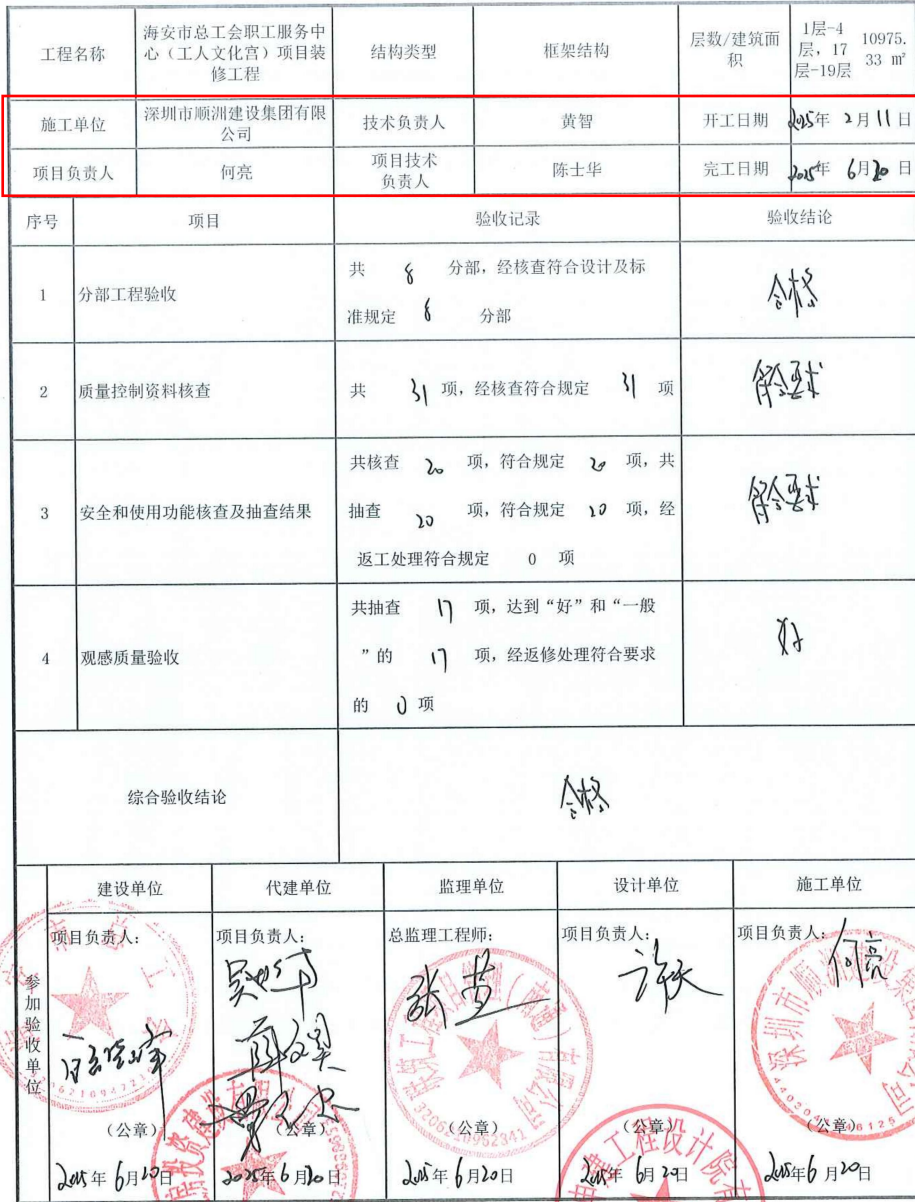 工程名称 海安市总工会职工服务中心（工人文化宫）项目装修工程 结构类型 框架结构 层数/建筑面积 1层-4层，17层-19层 10975.33 m²
施工单位 深圳市顺洲建设集团有限公司 技术负责人 黄智 开工日期 2025年 2月11日
项目负责人 何亮 项目技术负责人 陈士华 完工日期 2025年 6月20日
序号 项目 验收记录 验收结论
1 分部工程验收 共 8 分部，经核查符合设计及标准规定 8 分部 合格
2 质量控制资料核查 共 31 项，经核查符合规定 31 项 符合要求
3 安全和使用功能核查及抽查结果 共核查 20 项，符合规定 20 项，共抽查 20 项，符合规定 20 项，经返工处理符合规定 0 项 符合要求
4 观感质量验收 共抽查 17 项，达到“好”和“一般”的 17 项，经返修处理符合要求的 0 项 好
综合验收结论 合格
参加验收单位
建设单位 代建单位 监理单位 设计单位 施工单位
项目负责人： 项目负责人： 总监理工程师： 项目负责人： 项目负责人：
何亮
（公章） （公章） （公章） （公章） （公章）
2025年6月20日 2025年6月20日 2025年6月20日 2025年6月20日 2025年6月20日